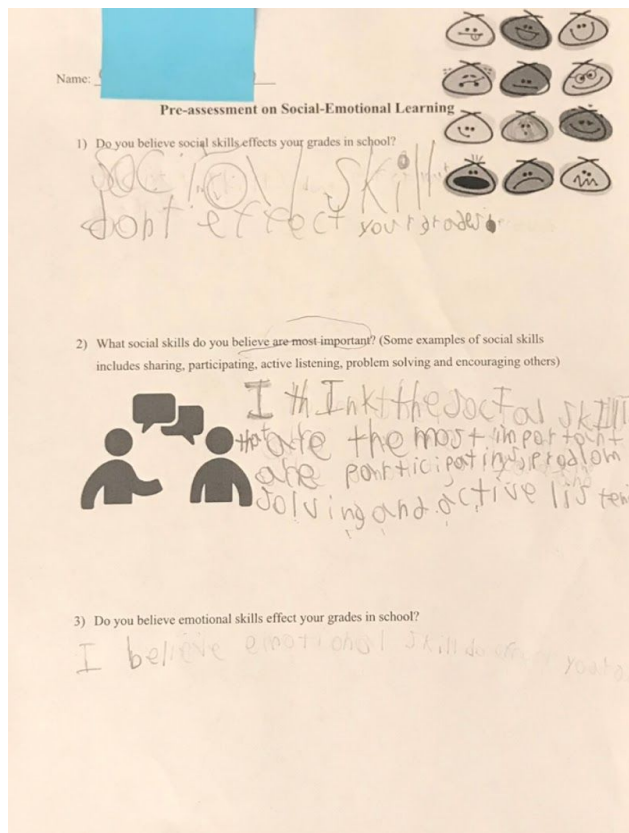 Name:
Pre-assessment on Social-Emotional Learning
1) Do you believe social skills effects your grades in school?
Social skill
dont effect your grades.
2) What social skills do you believe are most important? (Some examples of social skills
includes sharing, participating, active listening, problem solving and encouraging others)
I thInk the social skIll
that are the most important
are participating problom
solving and active listen
3) Do you believe emotional skills effect your grades in school?
I believe emotional skill do